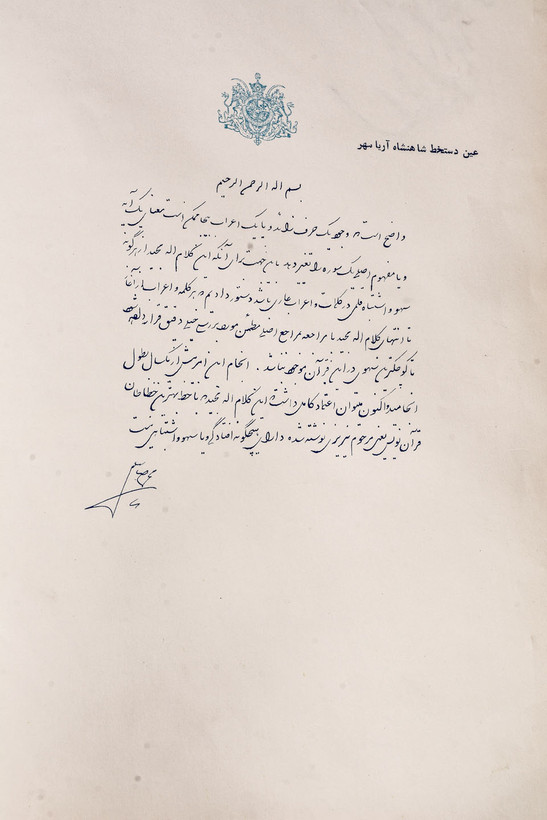 عین دستخط شاهنشاه آریامهر
بسم اله الرحمن الرحیم
واضح است که وجود یک حرف زائد و یا یک اعراب بیجا ممکن است معنای یک آیه
و یا مفهوم اصلی یک سوره را تغییر دهد بدین جهت برای آنکه این کلام اله مجید از هرگونه
سهو و اشتباه قلمی در کلمات و اعراب عاری باشد دستور دادیم که هر کلمه و اعراب از آغاز
تا انتهای کلام اله مجید با مراجعه به مراجع اصلی مطمئن مورد بررسی خیلی دقیق قرار داده شود
تا کوچکترین سهوی در این قرآن موجود نباشد . انجام این امر بیش از یک سال بطول
انجامید و اکنون میتوان اعتماد کامل داشت که این کلام اله مجید که با خط بهترین خطاطان
قرآن نویس یعنی مرحوم نیریزی نوشته شده دارای هیچگونه افتادگی و یا سهو و اشتباهی نیست